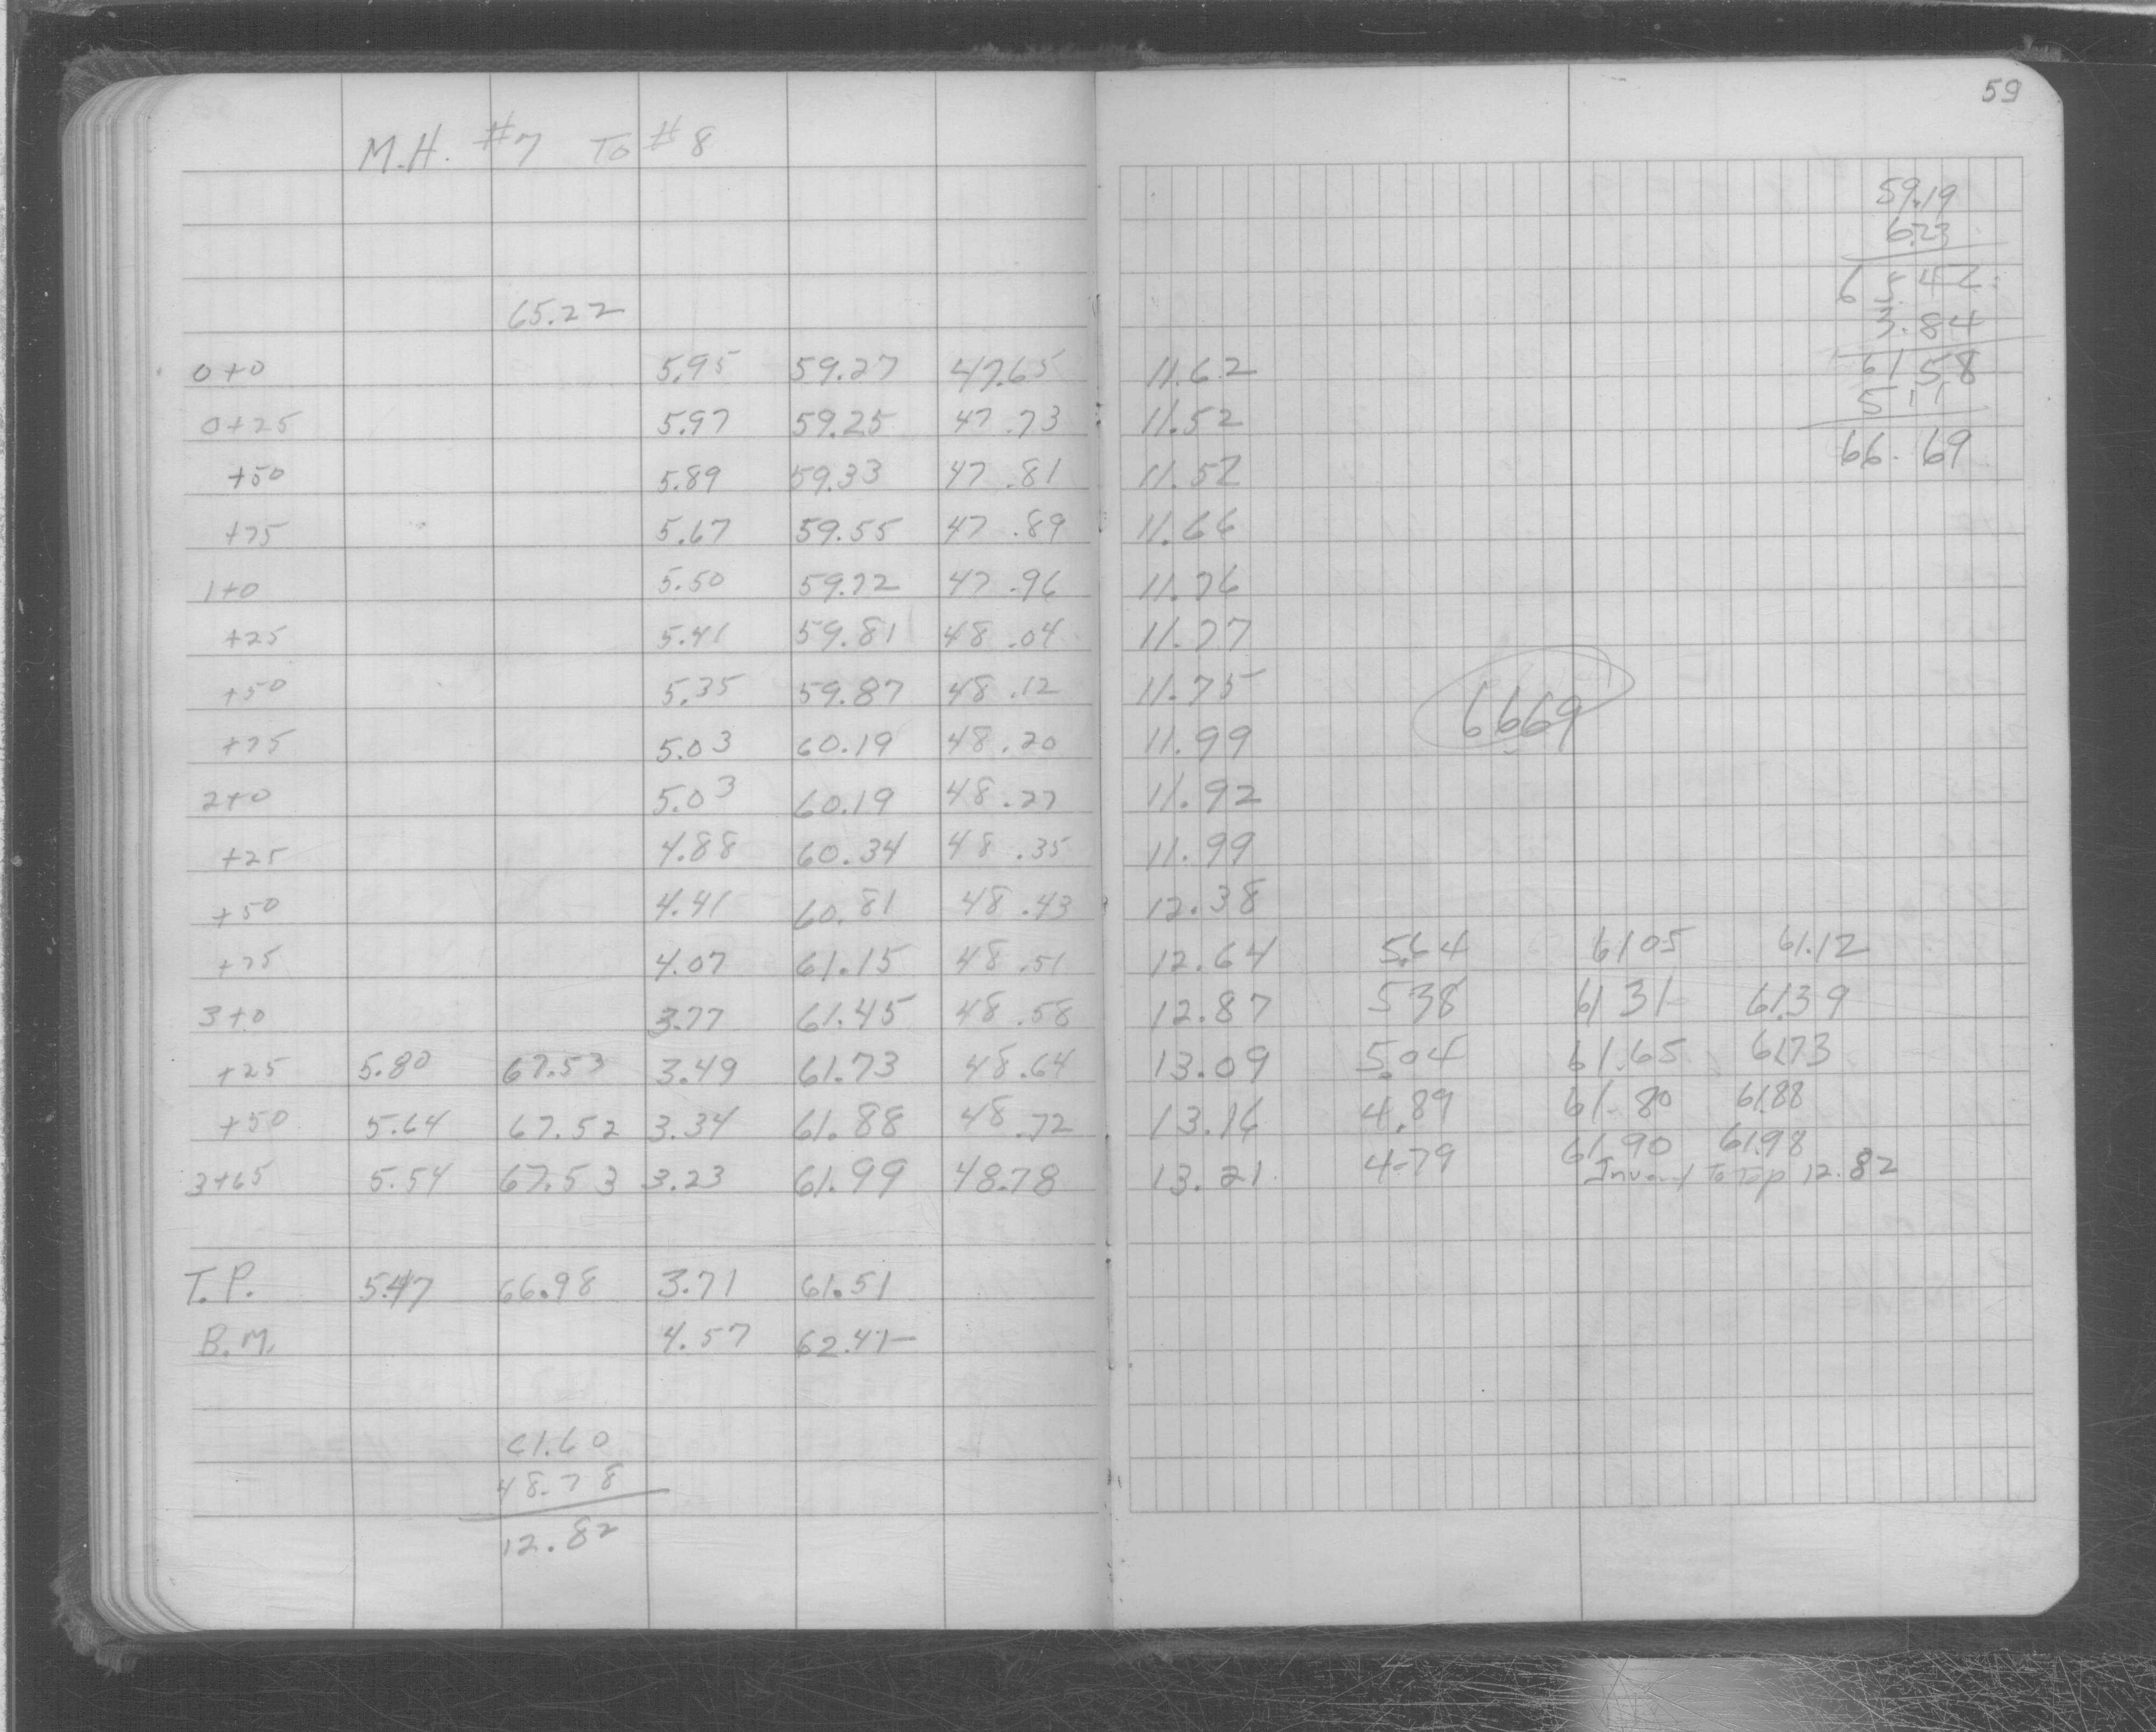 59
M.H. #7 To #8
65.22
0+0 5.95 59.27 47.65 11.62
0+25 5.97 59.25 47.73 11.52
+50 5.89 59.33 47.81 11.52
+75 5.67 59.55 47.89 11.66
1+0 5.50 59.72 47.96 11.76
+25 5.41 59.81 48.04 11.77
+50 5.35 59.87 48.12 11.75
+75 5.03 60.19 48.20 11.99
2+0 5.03 60.19 48.27 11.92
+25 4.88 60.34 48.35 11.99
+50 4.41 60.81 48.43 12.38
+75 4.07 61.15 48.51 12.64 5.64 61 05 61.12
3+0 3.77 61.45 48.58 12.87 538 61 31 61.39
+25 5.80 67.53 3.49 61.73 48.64 13.09 5.04 61.65 61.73
+50 5.64 67.52 3.34 61.88 48.72 13.16 4.89 61.80 61.88
3+65 5.54 67.53 3.23 61.99 48.78 13.21 4.79 61.90 61.98
Invert To Top 12.82
T.P. 5.47 66.98 3.71 61.51
B.M. 4.57 62.41
61.60
48.78
12.82
59.19
6.23
65.42
3.84
61 58
5 11
66.69
6669